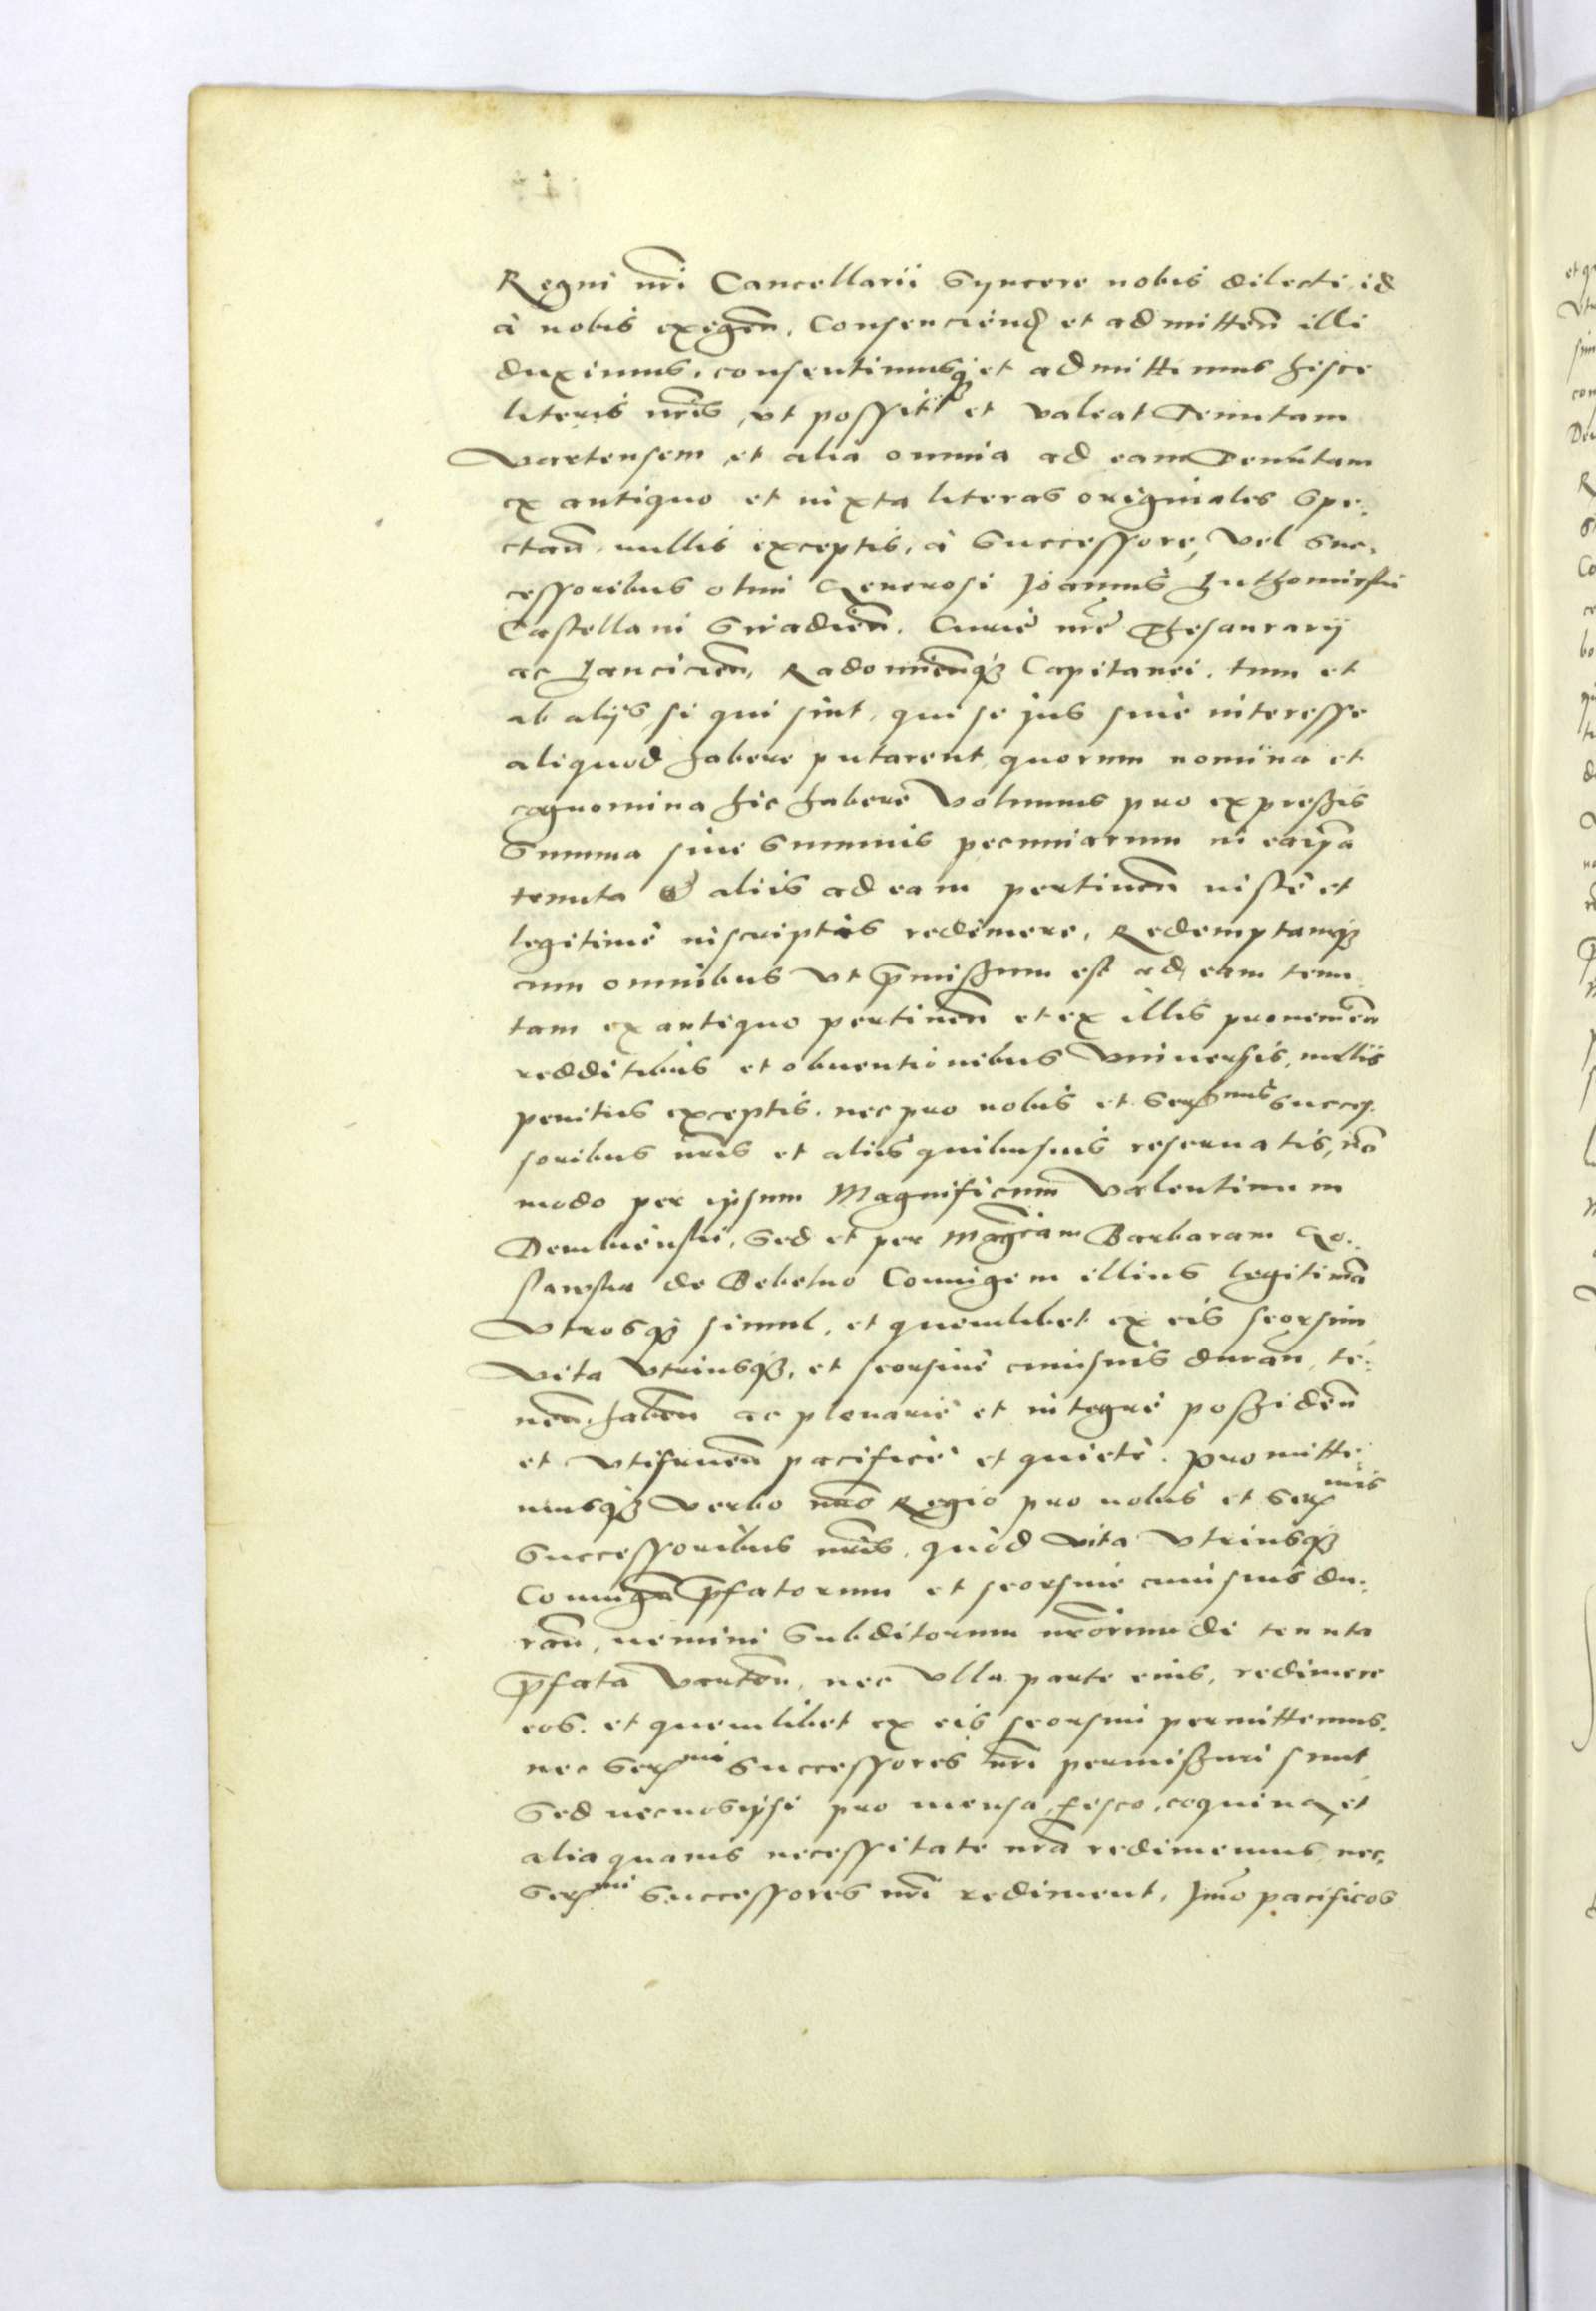 Regni nr̃i Cancellarii Syncere nobis dilecti id
à nobis exigeñ. Consenciend et admitteñ illi
duximus. consentimusq et admittimus hisce
literis nr̃is, vt possit et valeat Tenutam
Vartensem et alia omnia ad eam Tenutam
ex antiquo et iuxta literas originales Spe-
ctañ. nullis exceptis. à Successore, vel Suc-
cessoribus olim Generosi Joannis Luthomirski
Castellani Siradieñ. Curiæ nr̃e Thesaurarij
ac Lancicieñ, Radomieñq3 Capitanei. tum et
ab alijs si qui sint, qui se jus siue interesse
aliquod habere putarent, quorum nomina et
cognomina hic habere Volumus pro expressis
Summa siue Summis pecuniarum in ea ip̃a
tenuta & aliis ad eam pertineñ iustè et
legitimè inscriptis redimere. Redemptamq3
cum omnibus vt p̃missum est ad eam tenu
tam ex antiquo pertineñ et ex illis prouenieñ
redditibus et obuentionibus Vniuersis, nullis
penitus exceptis. nec pro nobis et Sermis Succes
soribus nr̃is et aliis quibusuis reseruatis, nõ
modo per ipsum Magnificum Valentinum
Dembienski, Sed et per Magcam Barbaram
de Coniugem illius legitimã
Vtrosq3 simul, et quemlibet ex eis seorsim
vita Vtriusq3, et seorsiue cuiusuis durañ, te-
neñ. habeñ ac plenariè et integrè possideñ
et Vtifrueñ pacificè et quietè. Promitti
musq3 Verbo nr̃o Regio pro nobis et Sermis
Successoribus nr̃is. quòd vita Vtriusq3
Coniugũ p̃fatorum et seorsiue cuiusuis du-
rañ, nemini Subditorum nr̃orum de tenuta
p̃fata Varteñ, nec Vlla parte eius, redimere
eos. et quemlibet ex eis seorsim permittemus.
nec Sermi Successores nr̃i permissuri sunt
Sed nec nosipsi pro mensa, fisco, coquina et
alia quauis necessitate nr̃a redimemus, nec
Sermi Successores nr̃i rediment, Jmo pacificos